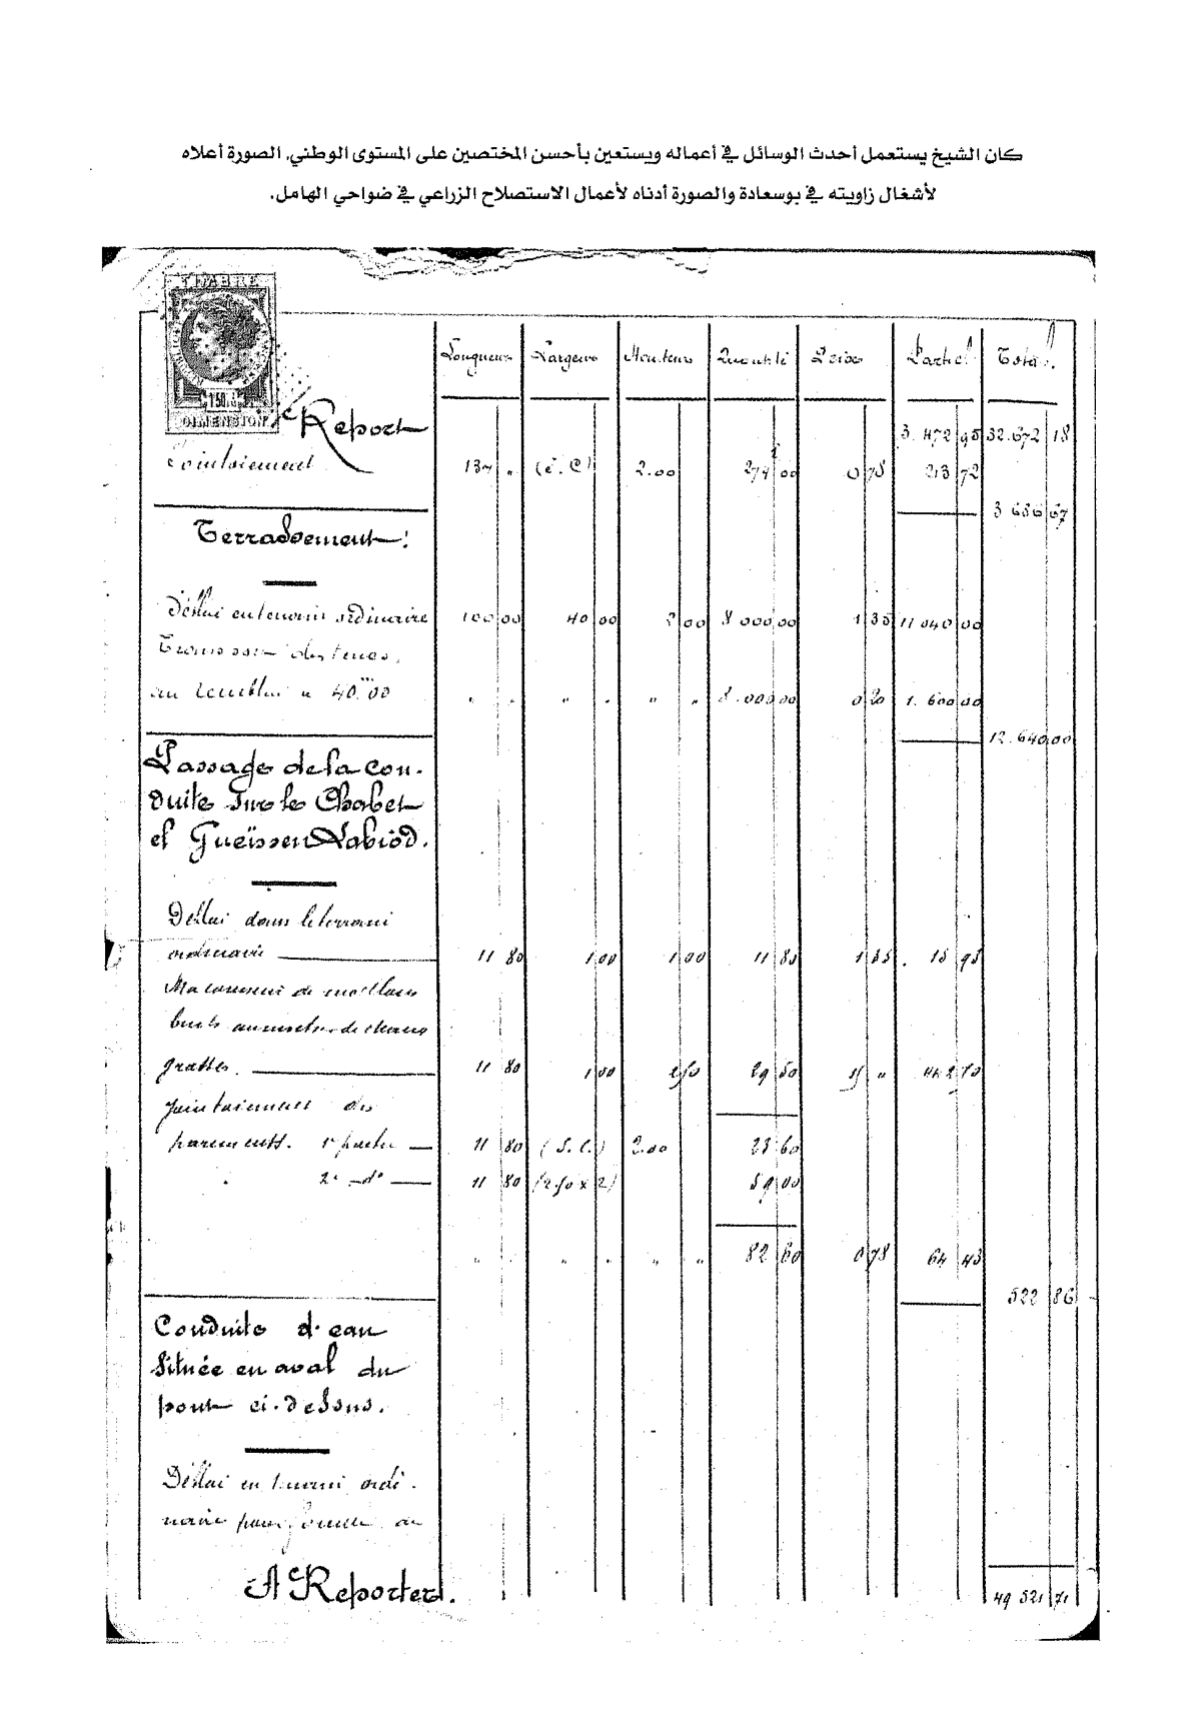 كان الشيخ يستعمل أحدث الوسائل في أعماله ويستعين بأحسن المختصين على المستوى الوطني، الصورة أعلاه
لأشغال زاويته في بوسعادة والصورة أدناه لأعمال الاستصلاح الزراعي في ضواحي الهامل.
TIMBRE
DIMENSION
Longueur Largeur Hauteur Quantité Prix Partiel Total.
Report 3.472 95 32.672 18
Jointoiement 137 " (S.C) 2.00 274 00 0 78 213 72
3 686 67
Terrassement :
Déblai en terrain ordinaire 100 00 40 00 2 00 8 000 00 1 38 11 040 00
des terres,
au remblai à 40.00 " " " " " " 8.000 00 0 20 1.600 00
12.640 00
Passage de la con-
duite sur le Chabet
el Gueïssen Labiod.
Déblai dans le terrain
ordinaire 11 80 1 00 1 00 11 80 1 35 15 93
Maçonnerie de moellons
bruts au mortier de chaux
grasse. 11 80 1 00 2 50 29 50 15 " 442 50
Jointoiement des
parements. 1e partie 11 80 (S.C.) 2.00 23 60
2e do 11 80 (2.50 x 2) 59 00
" " " " " " 82 60 0 78 64 43
522 86
Conduite d'eau
située en aval du
pont ci-dessus.
Déblai en terrain ordi-
naire pour fouille de
A Reporter. 49 521 71